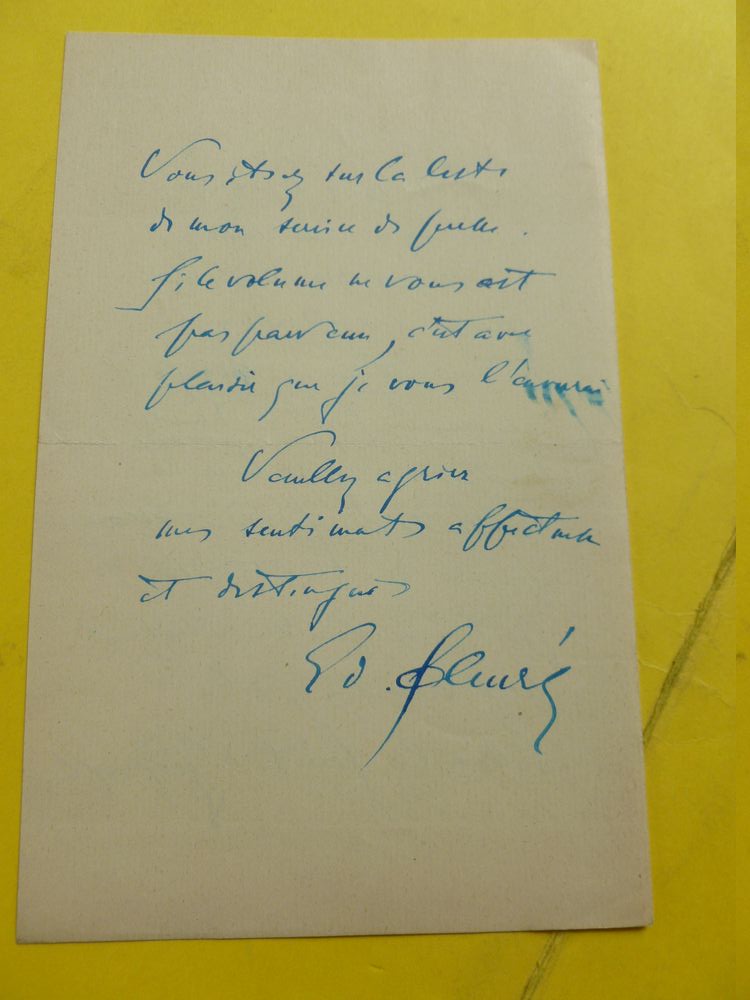 Vous étiez sur la liste
de mon service de presse.
Si le volume ne vous est
pas parvenu, c'est avec
plaisir que je vous l'enverrai
Veuillez agréer
mes sentiments affectueux
et distingués
Ed.